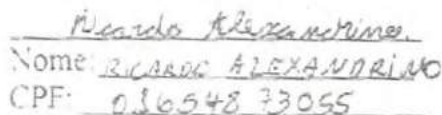 Ricardo Alexandrino
Nome: RICARDO ALEXANDRINO
CPF: 036548 73055